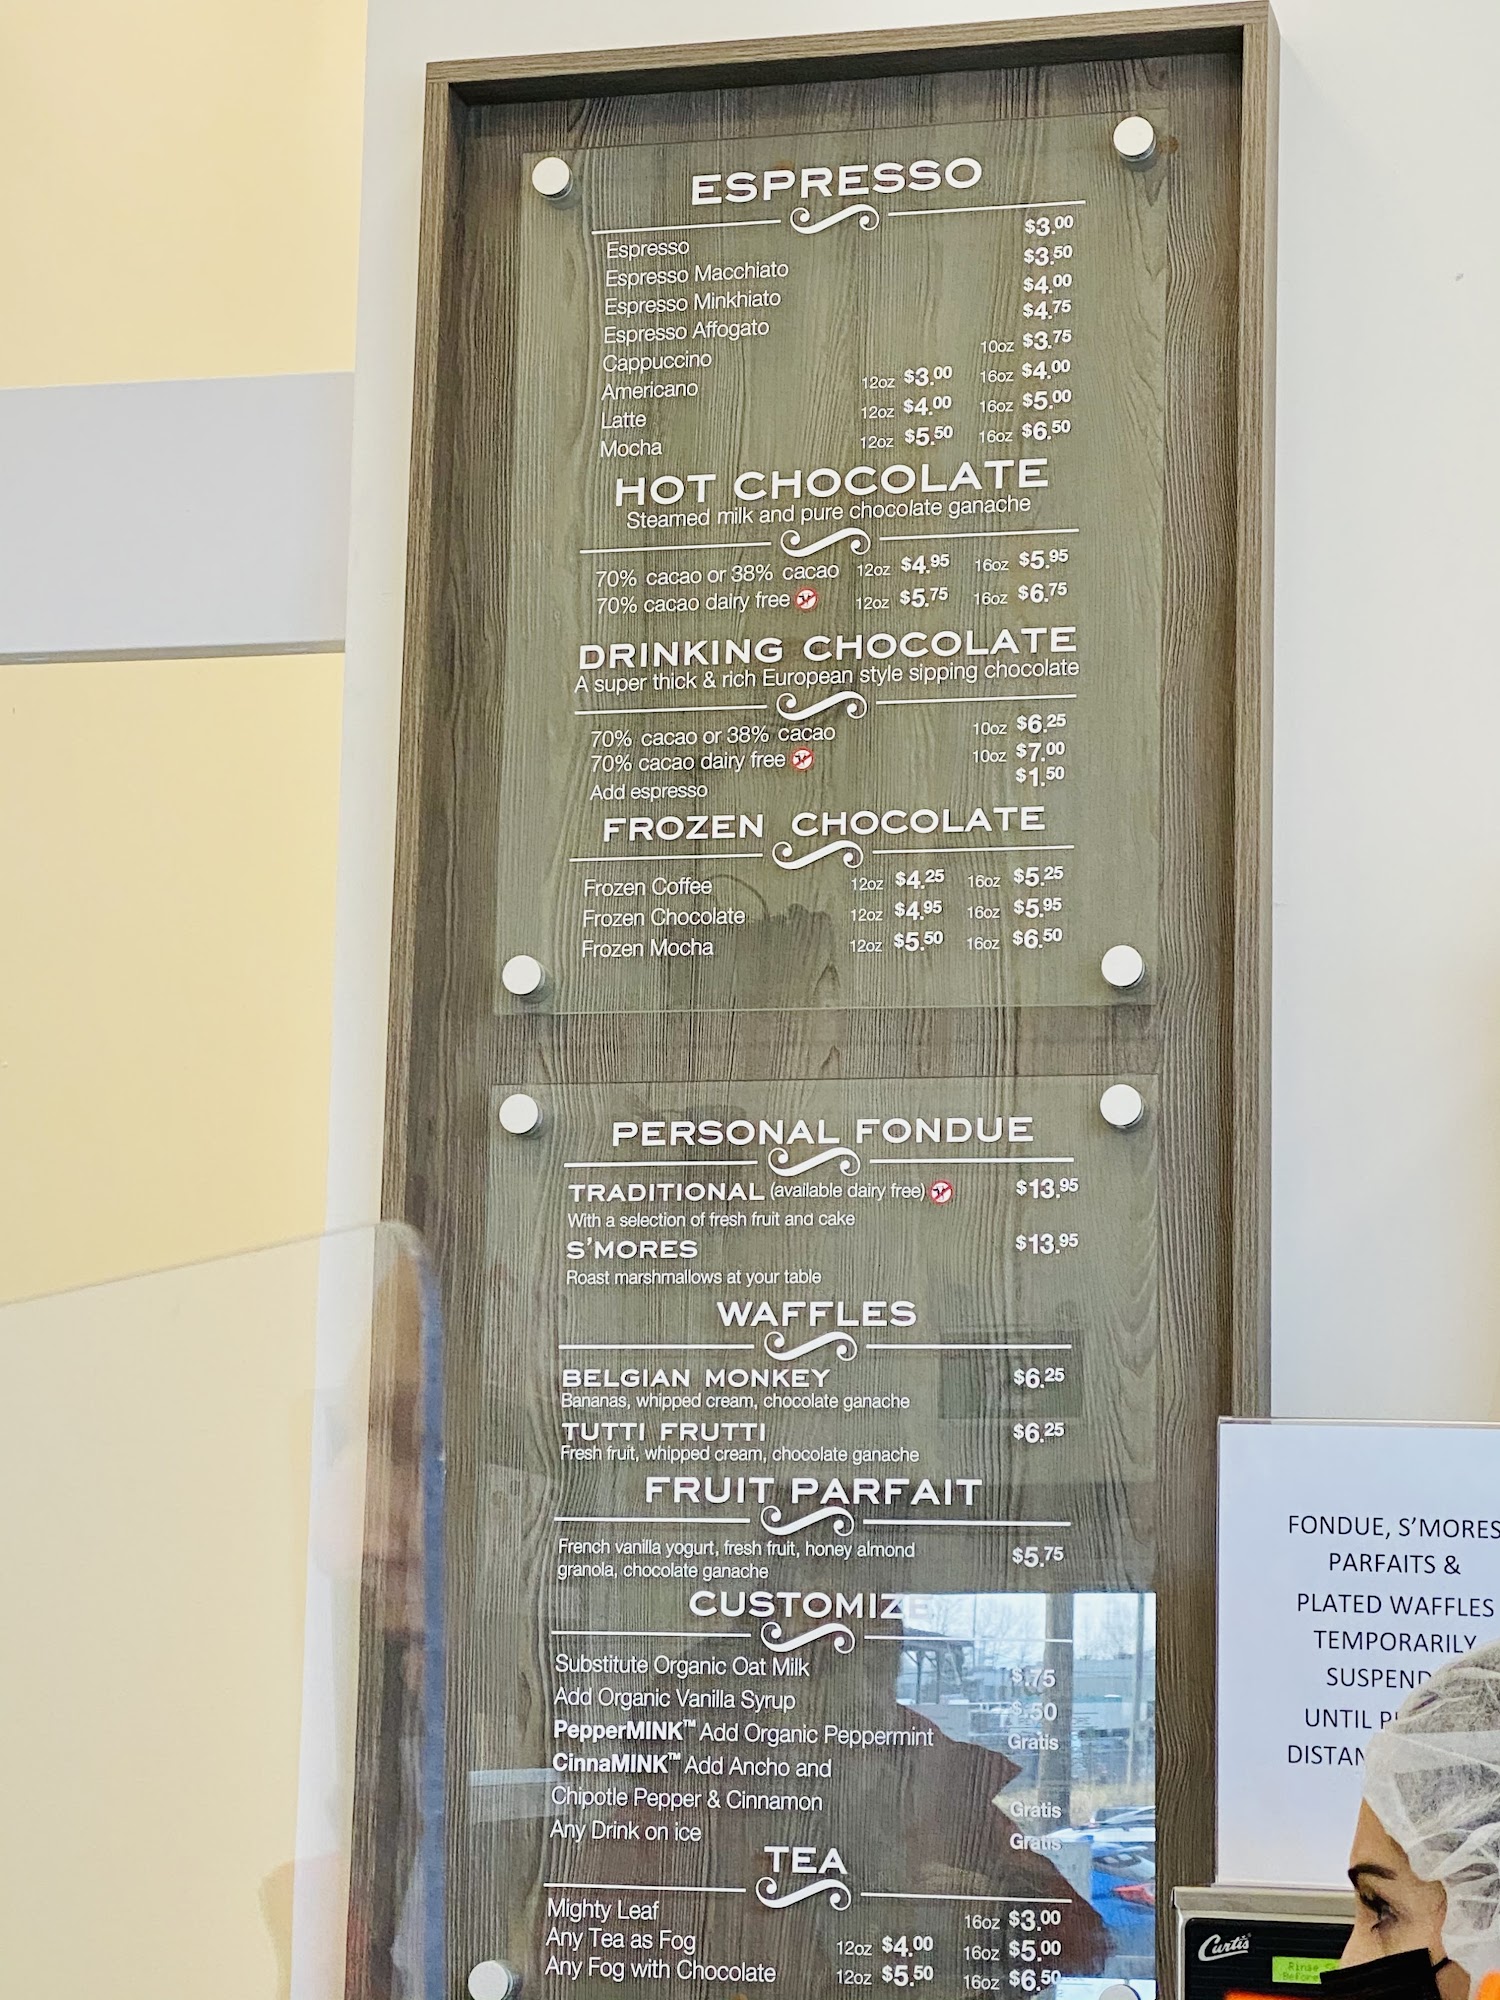 ESPRESSO
Espresso $3.00
Espresso Macchiato $3.50
Espresso Minkhiato $4.00
Espresso Affogato $4.75
Cappuccino 10oz $3.75
Americano 12oz $3.00 16oz $4.00
Latte 12oz $4.00 16oz $5.00
Mocha 12oz $5.50 16oz $6.50
HOT CHOCOLATE
Steamed milk and pure chocolate ganache
70% cacao or 38% cacao 12oz $4.95 16oz $5.95
70% cacao dairy free 12oz $5.75 16oz $6.75
DRINKING CHOCOLATE
A super thick & rich European style sipping chocolate
70% cacao or 38% cacao 10oz $6.25
70% cacao dairy free 10oz $7.00
Add espresso $1.50
FROZEN CHOCOLATE
Frozen Coffee 12oz $4.25 16oz $5.25
Frozen Chocolate 12oz $4.95 16oz $5.95
Frozen Mocha 12oz $5.50 16oz $6.50
PERSONAL FONDUE
TRADITIONAL (available dairy free) $13.95
With a selection of fresh fruit and cake
S'MORES $13.95
Roast marshmallows at your table
WAFFLES
BELGIAN MONKEY $6.25
Bananas, whipped cream, chocolate ganache
TUTTI FRUTTI $6.25
Fresh fruit, whipped cream, chocolate ganache
FRUIT PARFAIT
French vanilla yogurt, fresh fruit, honey almond $5.75
granola, chocolate ganache
CUSTOMIZE
Substitute Organic Oat Milk $.75
Add Organic Vanilla Syrup $.50
PepperMINK™ Add Organic Peppermint Gratis
CinnaMINK™ Add Ancho and
Chipotle Pepper & Cinnamon Gratis
Any Drink on ice Gratis
TEA
Mighty Leaf 16oz $3.00
Any Tea as Fog 12oz $4.00 16oz $5.00
Any Fog with Chocolate 12oz $5.50 16oz $6.50
FONDUE, S'MORES
PARFAITS &
PLATED WAFFLES
TEMPORARILY
SUSPEND
UNTIL
DISTAN
Curtis
Rinse
Before